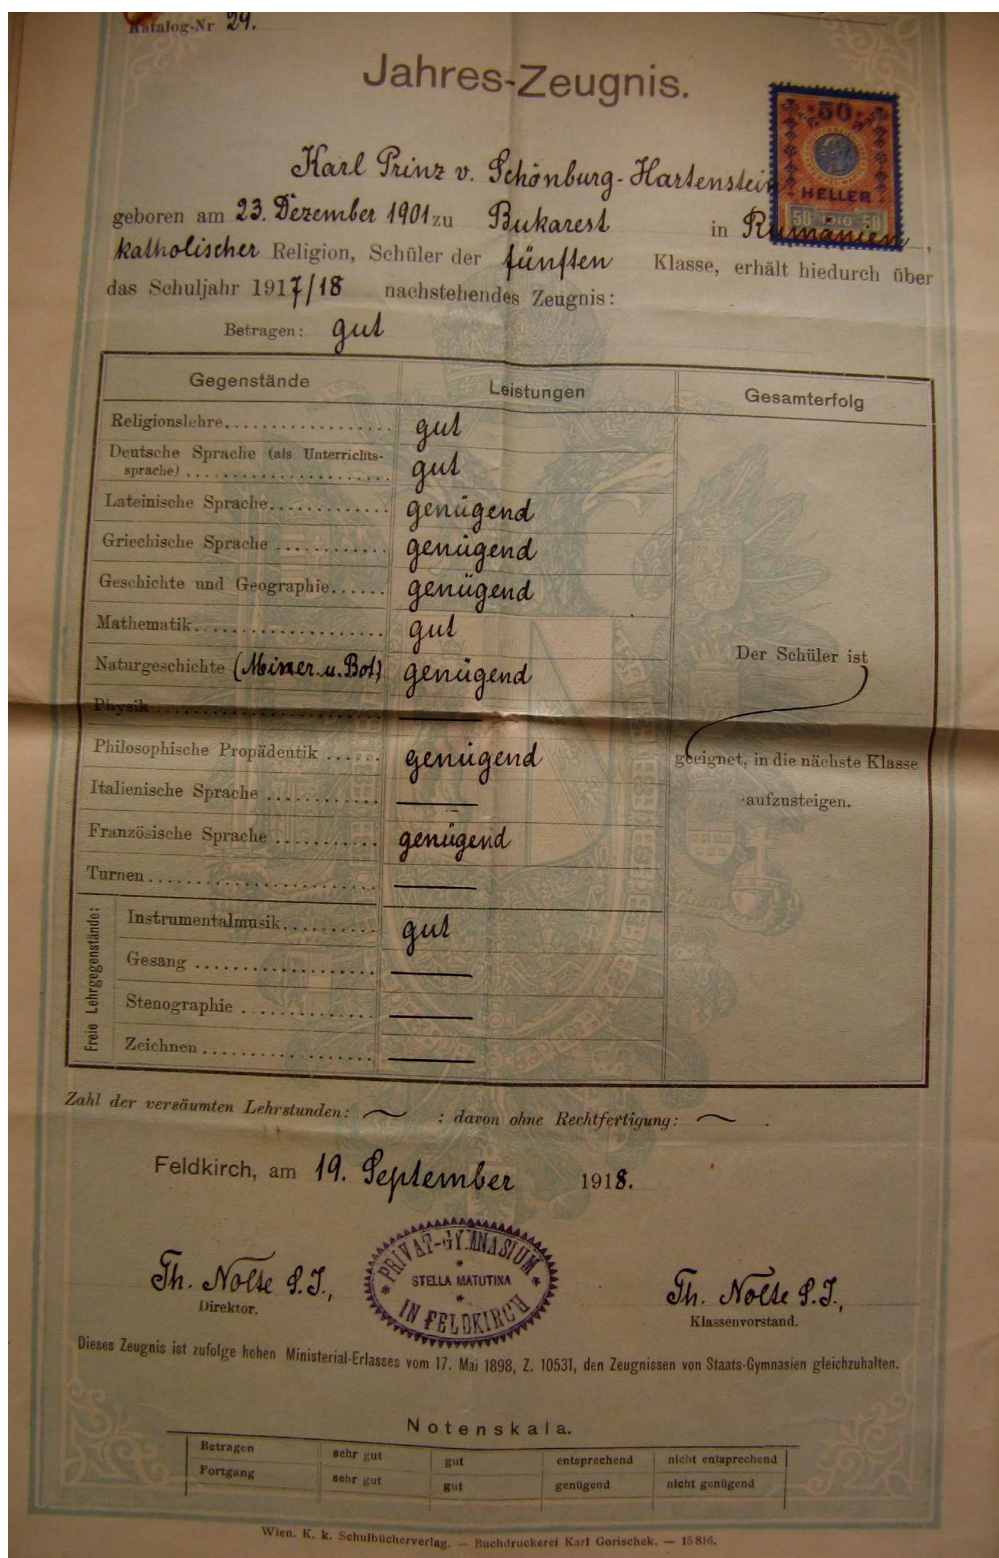 Katalog-Nr 24.
Jahres-Zeugnis.
50
HELLER
50 1910 50
Karl Prinz v. Schönburg-Hartenstein
geboren am 23. Dezember 1901 zu Bukarest in Rumänien,
katholischer Religion, Schüler der fünften Klasse, erhält hiedurch über
das Schuljahr 1917/18 nachstehendes Zeugnis:
Betragen: gut
Gegenstände Leistungen Gesamterfolg
Religionslehre gut
Deutsche Sprache (als Unterrichts-
sprache) gut
Lateinische Sprache genügend
Griechische Sprache genügend
Geschichte und Geographie genügend
Mathematik gut
Naturgeschichte (Miner. u. Bot) genügend
Physik —
Philosophische Propädentik genügend
Italienische Sprache —
Französische Sprache genügend
Turnen —
Der Schüler ist
geeignet, in die nächste Klasse
aufzusteigen.
Freie Lehrgegenstände:
Instrumentalmusik gut
Gesang —
Stenographie —
Zeichnen —
Zahl der versäumten Lehrstunden: ~ ; davon ohne Rechtfertigung: ~ .
Feldkirch, am 19. September 1918.
Th. Nolte S.J.,
Direktor.
PRIVAT-GYMNASIUM
STELLA MATUTINA
IN FELDKIRCH
Th. Nolte S.J.,
Klassenvorstand.
Dieses Zeugnis ist zufolge hohen Ministerial-Erlasses vom 17. Mai 1898, Z. 10531, den Zeugnissen von Staats-Gymnasien gleichzuhalten.
Notenskala.
Betragen sehr gut gut entsprechend nicht entsprechend
Fortgang sehr gut gut genügend nicht genügend
Wien. K. k. Schulbücherverlag. — Buchdruckerei Karl Gorischek. — 15816.